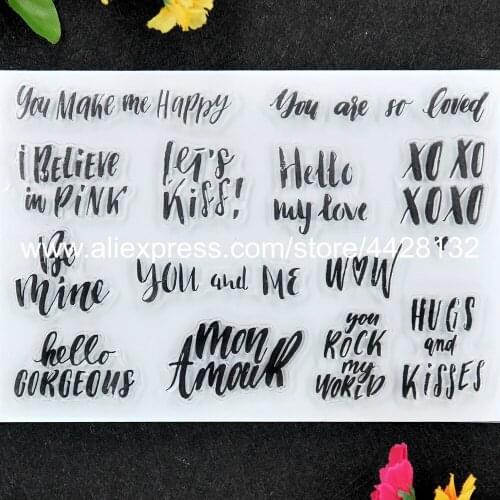 You Make me Happy
You are so loved
i BELIEVE
in PiNK
LET'S
KiSS!
Hello
my love
XO XO
XOXO
www.aliexpress.com/store/4428132
Be
mine
YOU and ME
WOW
hello
GORGEOUS
mon
Amour
you
ROCK
my
WORLD
HUGS
and
KiSSES